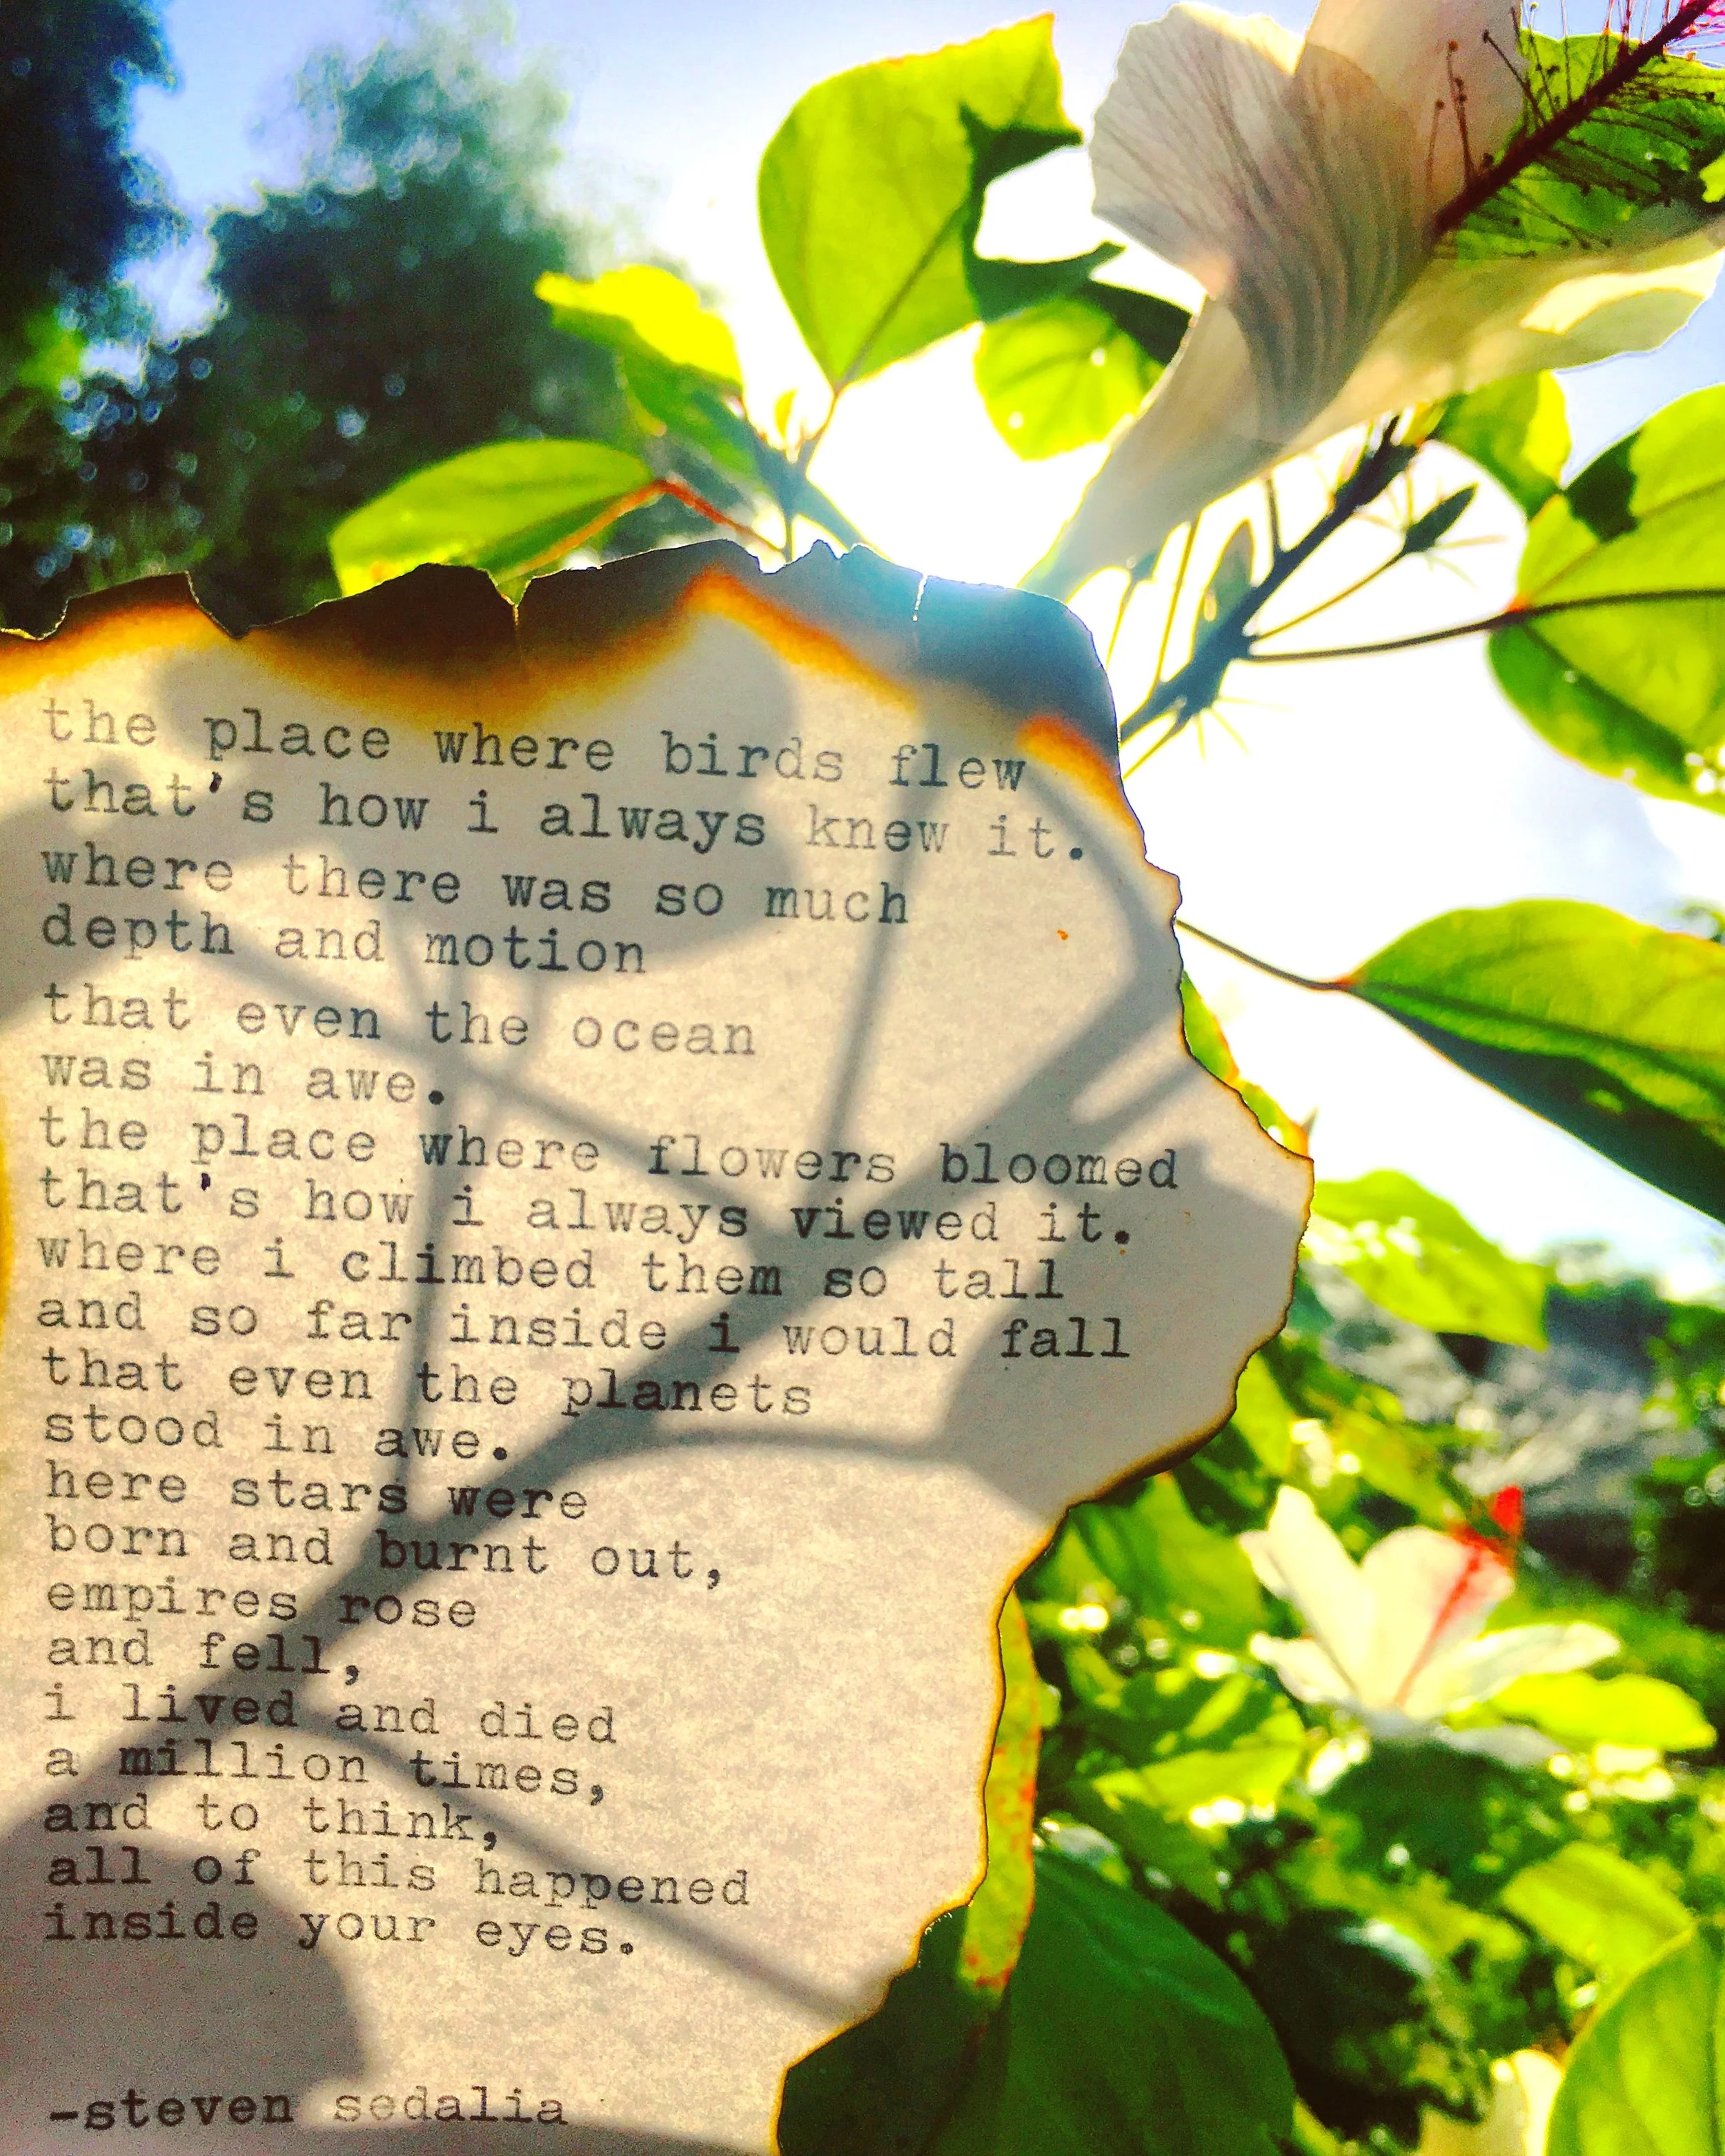 the place where birds flew
that's how i always knew it.
where there was so much
depth and motion
that even the ocean
was in awe.
the place where flowers bloomed
that's how i always viewed it.
where i climbed them so tall
and so far inside i would fall
that even the planets
stood in awe.
here stars were
born and burnt out,
empires rose
and fell,
i lived and died
a million times,
and to think,
all of this happened
inside your eyes.
-steven sedalia